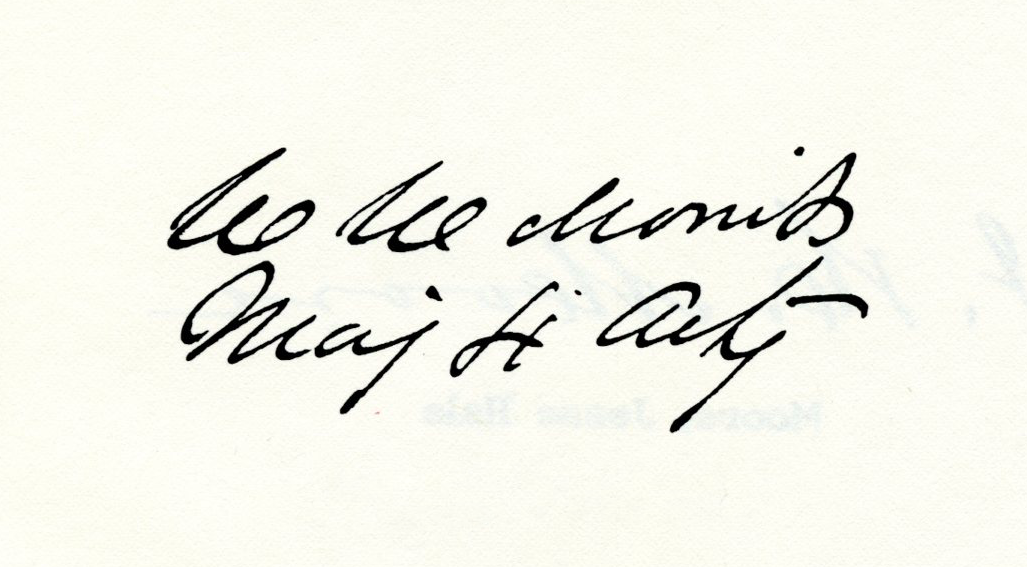 W W Morris
Maj 4 Arty